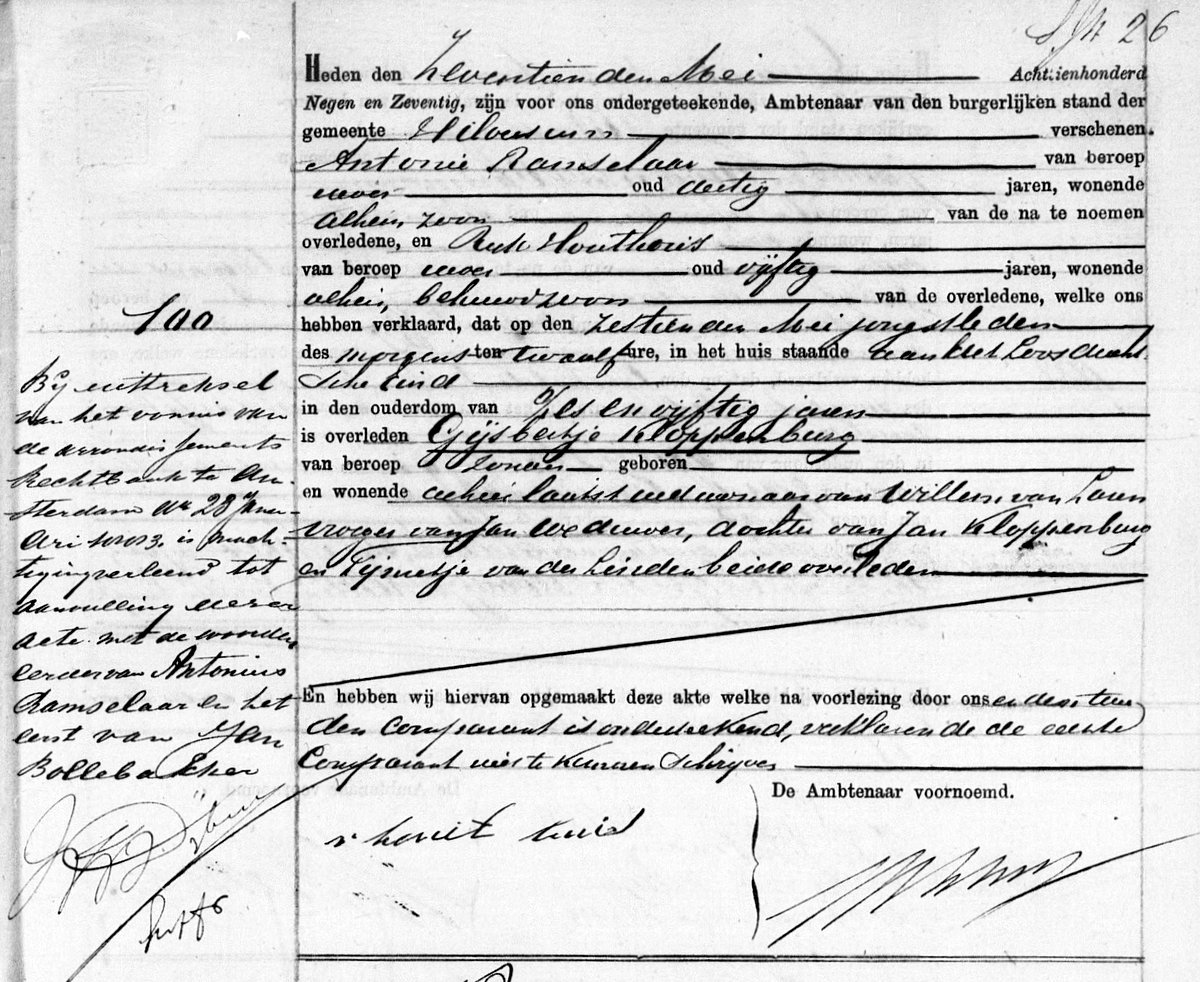 26
Heden den Zeventienden Mei Achttienhonderd
Negen en Zeventig, zijn voor ons ondergeteekende, Ambtenaar van den burgerlijken stand der
gemeente Hilversum verschenen.
Antonie Ramselaar van beroep
wever oud dertig jaren, wonende
alhier, zoon van de na te noemen
overledene, en Houthuis
van beroep wever oud vijftig jaren, wonende
alhier, behuwdzoon van de overledene, welke ons
hebben verklaard, dat op den zestienden Mei jongstleden
des morgens ten twaalf ure, in het huis staande aan het Loosdrecht
sche Eind
in den ouderdom van Zes en vijftig jaren
is overleden Gijsbertje Kloppenburg
van beroep zonder geboren
en wonende alhier laatst weduwnaar van Willem van Loren
vroeger van Jan Weduwer, dochter van Jan Kloppenburg
en Tijmetje van der Linden beide overleden
En hebben wij hiervan opgemaakt deze akte welke na voorlezing door ons en den twee
den Comparant is onderteekend, verklarende de eerste
Comparant niet te kunnen schrijven
De Ambtenaar voornoemd.
100
Bij uittreksel
van het vonnis van
de arrondissements
Rechtbank te Am
sterdam dd 28 Janu
ari 1893 is mach
tiging verleend tot
aanvulling dezer
acte met de woorden
eerder van Antonius
Ramselaar en het
eerst van Jan
Bollebakker